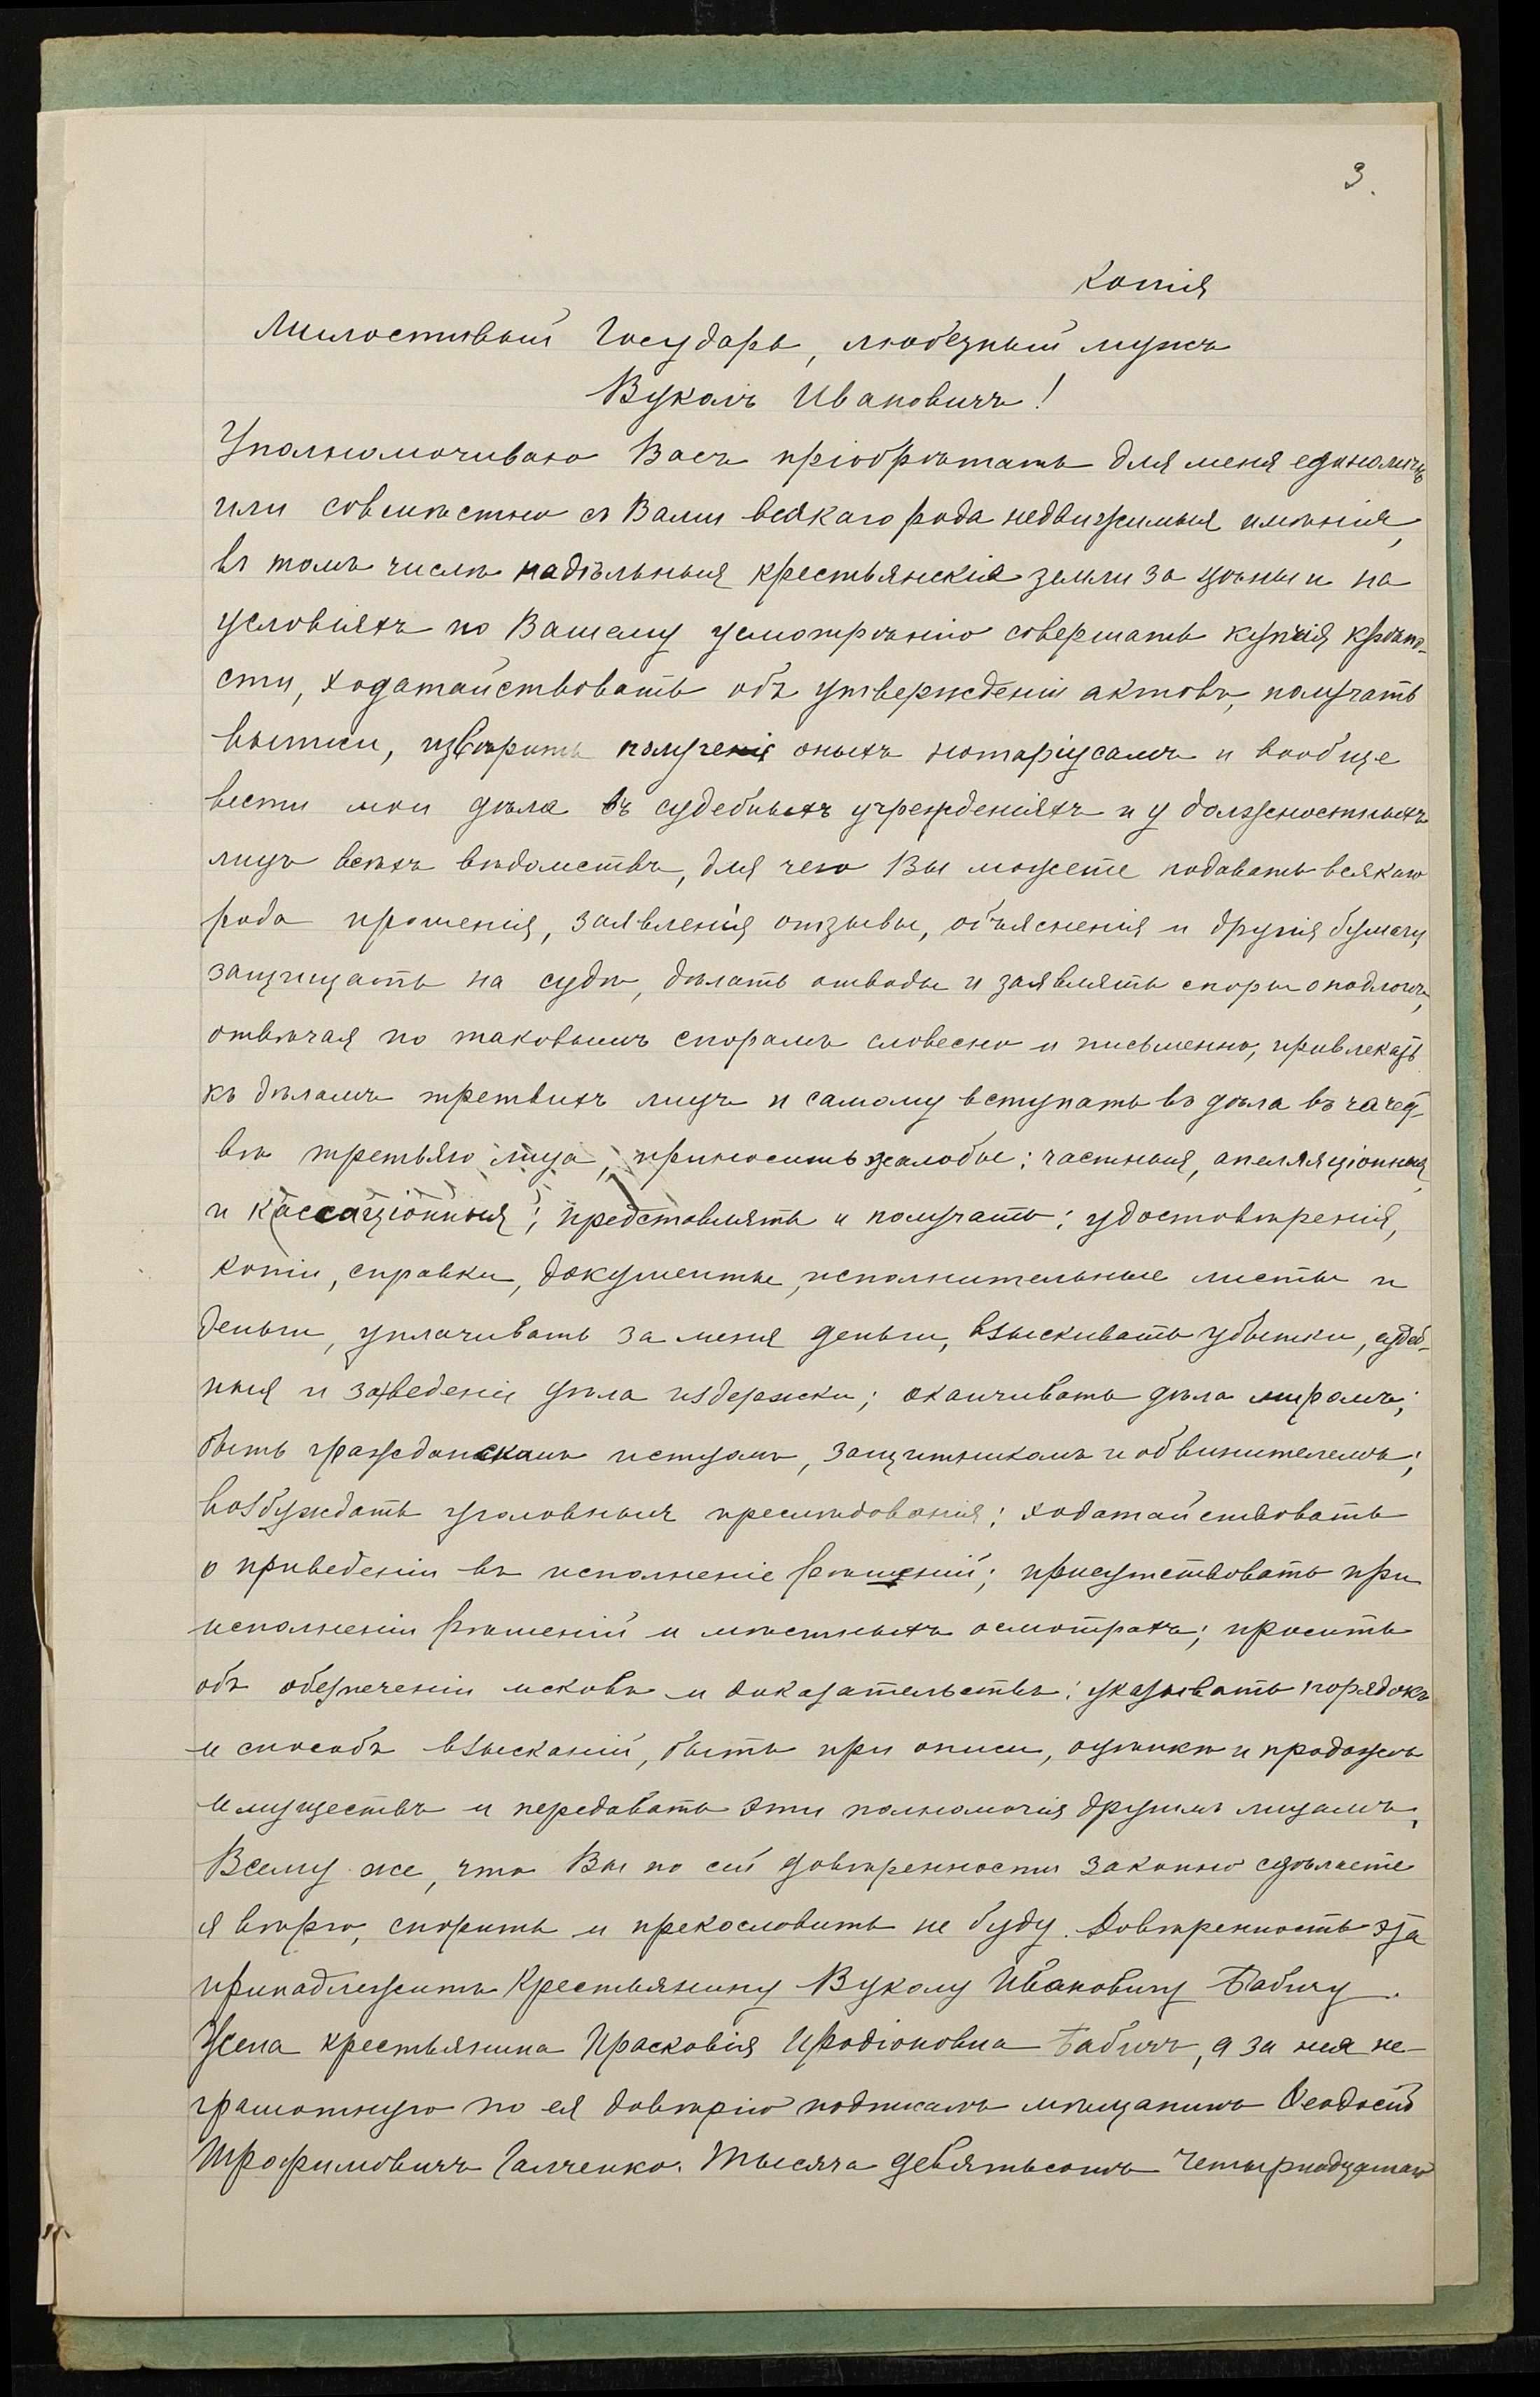 3.
Копія
Милостивый Государь, любезный мужъ
Вуколъ Ивановичъ!
Уполномочиваю Васъ пріобрѣтать для меня единолично
или совмѣстно съ Вами всякаго рода недвижимыя имѣнія,
въ томъ числѣ надѣльныя крестьянскія земли за цѣны и на
условіяхъ по Вашему усмотрѣнію совершать купчія крѣпо-
сти, ходатайствовать объ утвержденіи актовъ, получать
выписи, извѣрить полученія оныхъ нотаріусамъ и вообще
вести мои дѣла въ судебныхъ учрежденіяхъ и у должностныхъ
лицъ всѣхъ вѣдомствъ, для чего Вы можете подавать всякаго
рода прошенія, заявленія отзывы, объясненія и другія бумаги
защищать на судѣ, дѣлать отводы и заявлять споры о подлогѣ,
отвѣчая по таковымъ спорамъ словесно и письменно, привлекать
къ дѣламъ третьихъ лицъ и самому вступать въ дѣла въ качест
вѣ третьяго лица, приносить жалобы: частныя, апелляціонныя,
и кассаціонныя; представлять и получать: удостовѣренія,
копіи, справки, документы, исполнительные листы и
деньги, уплачивать за меня деньги, взыскивать убытки, судеб-
ныя и за веденіи дѣла издержки; оканчивать дѣла миромъ;
быть гражданскимъ истцомъ, защитникомъ и обвинителемъ;
возбуждать уголовныя преслѣдованія; ходатайствовать
о приведеніи въ исполненіе рѣшеній; присутствовать при
исполненіи рѣшеній и мѣстныхъ осмотрахъ; просить
объ обезпеченіи исковъ и доказательствъ; указывать порядокъ
и способъ взысканій, быть при описи, оцѣнкѣ и продажѣ
имуществъ и передавать эти полномочія другимъ лицамъ.
Всему же, что Вы по сей довѣренности законно сдѣлаете
я вѣрю, спорить и прекословить не буду. Довѣренность эта
принадлежитъ Крестьянину Вуколу Ивановичу Бабичу.
Жена крестьянина Прасковія Иродіоновна Бабичъ, а за нея не-
грамотную по ея довѣрію подписалъ мѣщанинъ Феодосій
Трофимовичъ Галченко. Тысяча девятьсотъ Четырнадцатаго